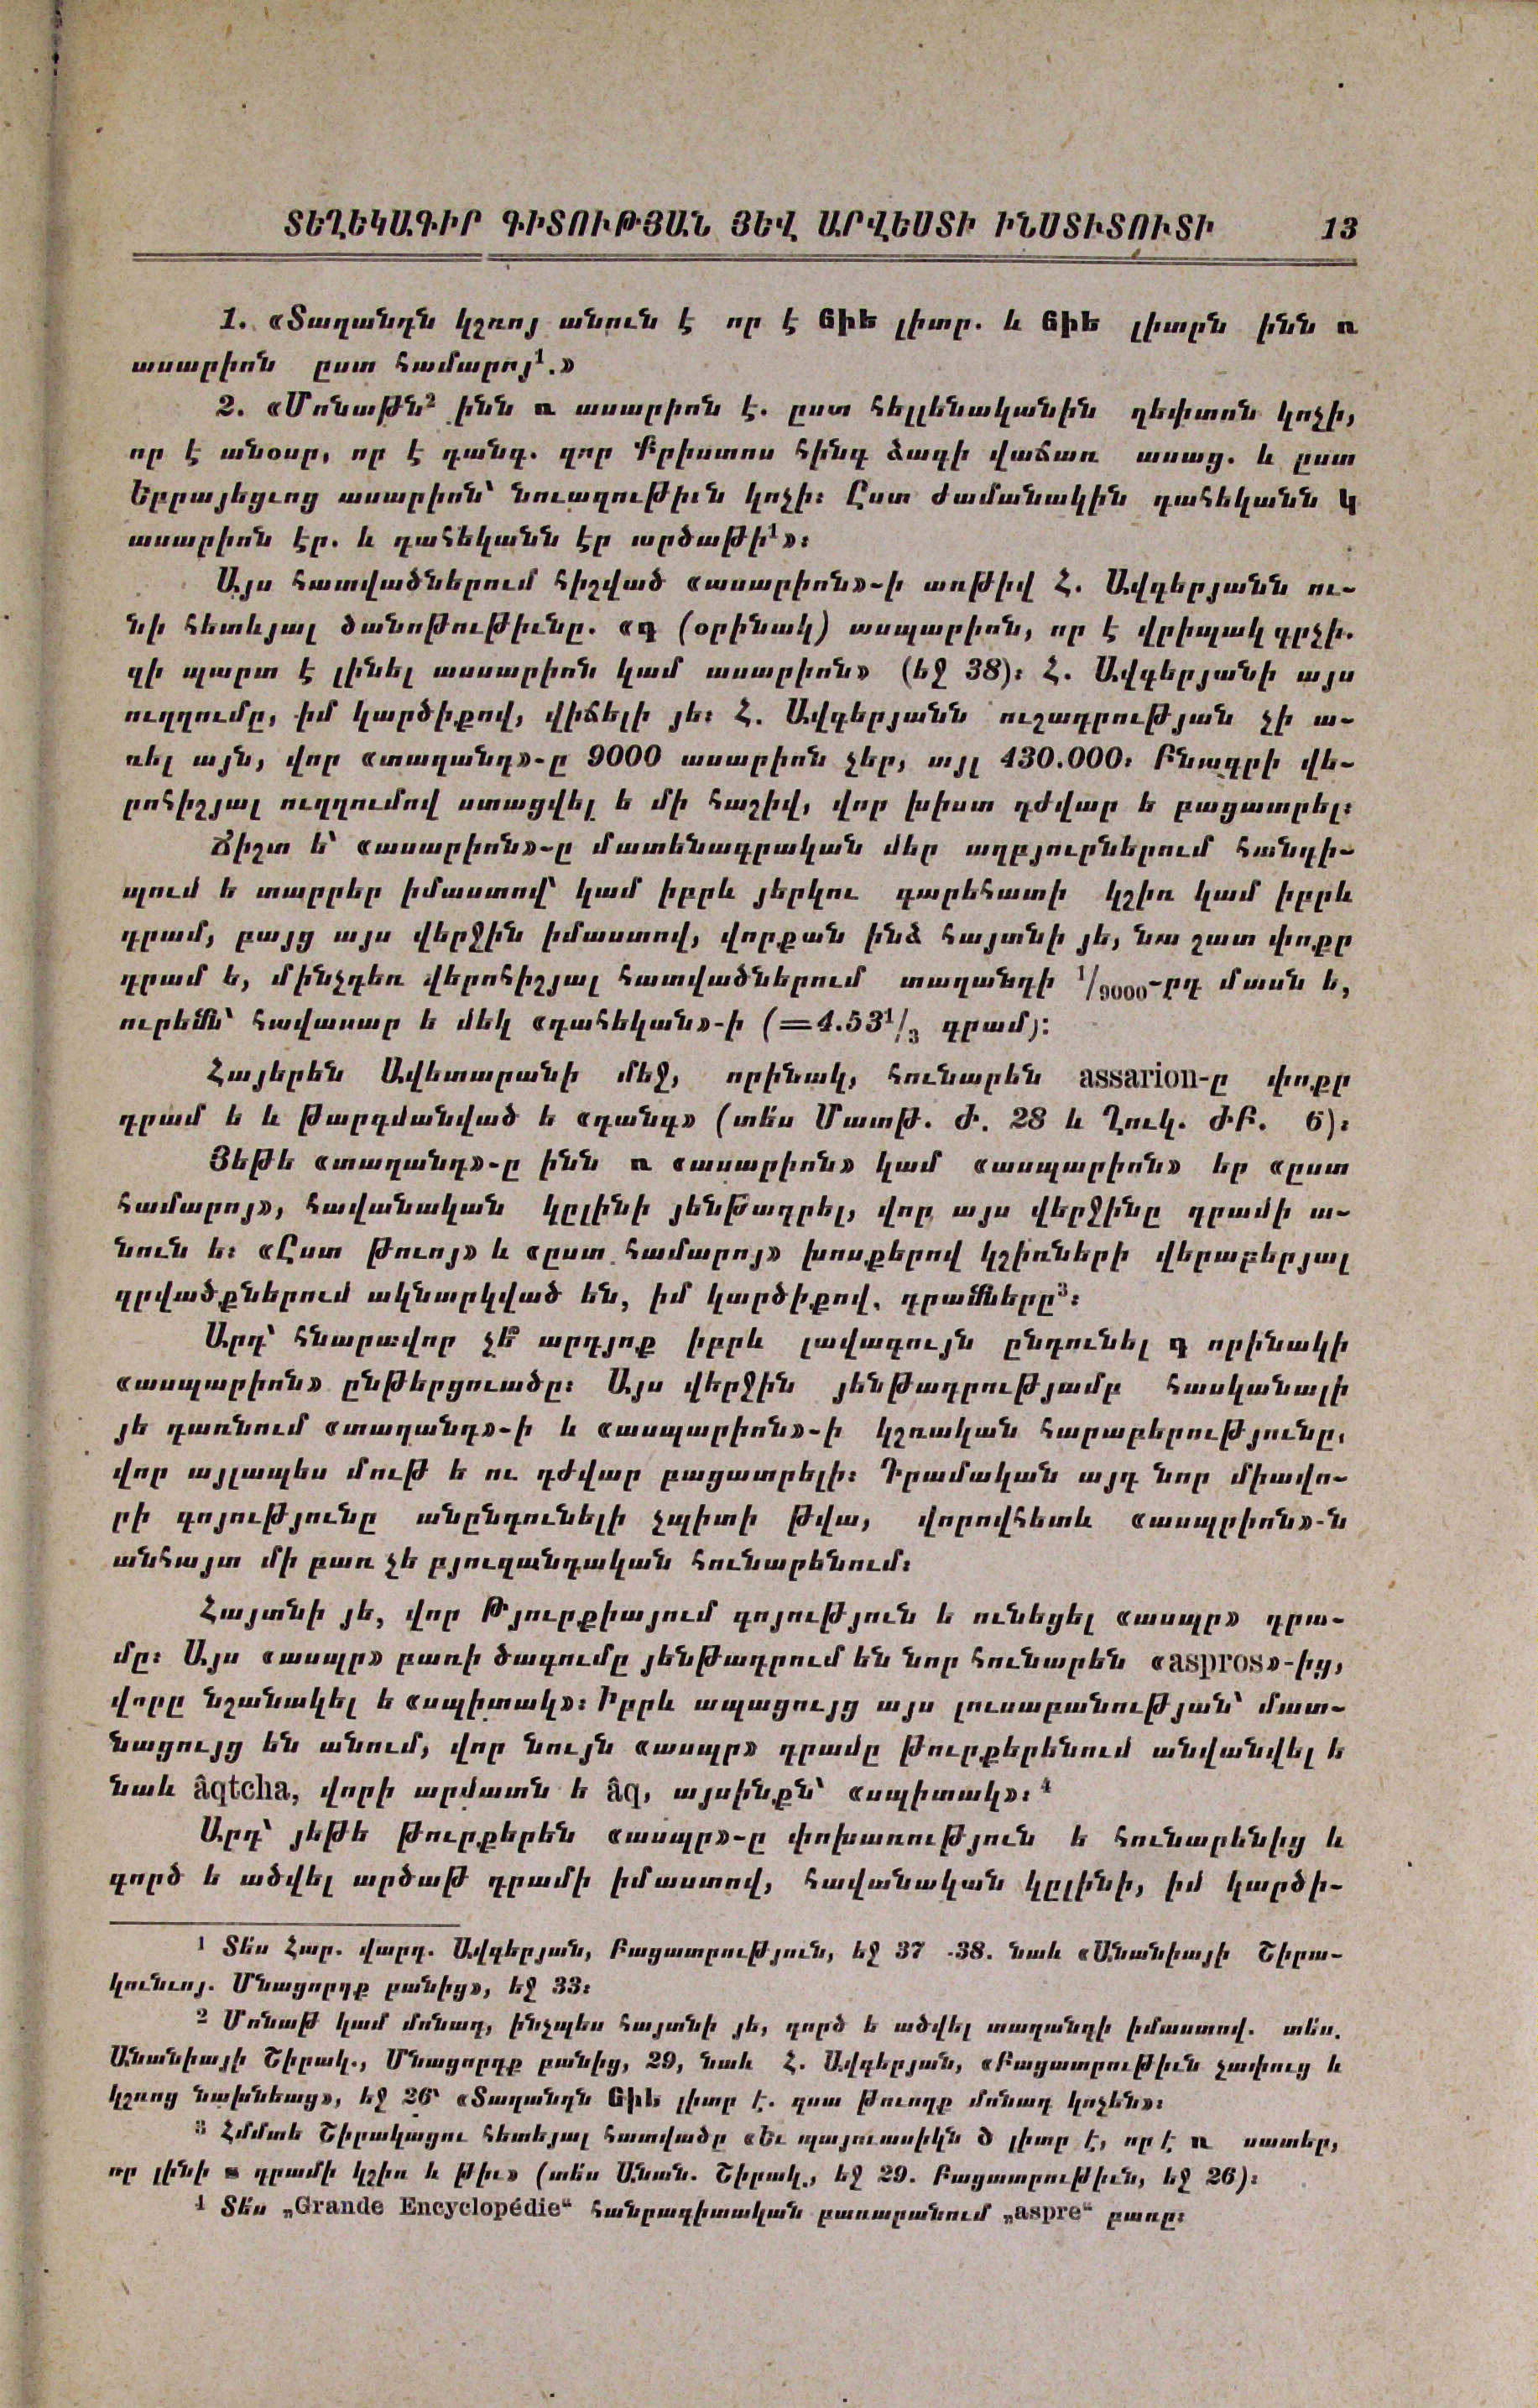 ՏԵՂԵԿԱԳԻՐ ԳԻՏՈՒԹՅԱՆ ՅԵՎ ԱՐՎԵՍՏԻ ԻՆՍՏԻՏՈՒՏԻ 13
1. «Տաղանդն կշռոյ անուն է որ է ճիե լիտր. և ճիե լիտրն ինն ռ
ասարիոն ըստ համարոյ¹.»
2. «Մոնաթն² ինն ռ ասարիոն է. ըստ հելլենականին ղեփտոն կոչի,
որ է անօսր, որ է դանգ. զոր Քրիստոս հինգ ձագի վաճառ ասաց. և ըստ
Եբրայեցւոց ասարիոն՝ նուազութիւն կոչի։ Ըստ ժամանակին դահեկանն կ
ասարիոն էր. և դահեկանն էր արծաթի¹»։
Այս հատվածներում հիշված «ասարիոն»-ի առթիվ Հ. Ավգերյանն ու-
նի հետևյալ ծանոթութիւնը. «գ (օրինակ) ասպարիոն, որ է վրիպակ գրչի.
զի պարտ է լինել ասսարիոն կամ ասարիոն» (եջ 38)։ Հ. Ավգերյանի այս
ուղղումը, իմ կարծիքով, վիճելի յե։ Հ. Ավգերյանն ուշադրության չի ա-
ռել այն, վոր «տաղանդ»-ը 9000 ասարիոն չեր, այլ 430.000։ Բնագրի վե-
րոհիշյալ ուղղումով ստացվել ե մի հաշիվ, վոր խիստ դժվար ե բացատրել։
Ճիշտ ե՝ «ասարիոն»-ը մատենագրական մեր աղբյուրներում հանդի-
պում ե տարբեր իմաստով՝ կամ իբրև յերկու գարեհատի կշիռ կամ իբրև
դրամ, բայց այս վերջին իմաստով, վորքան ինձ հայտնի յե, նա շատ փոքր
դրամ ե, մինչդեռ վերոհիշյալ հատվածներում տաղանդի ¹/₉₀₀₀-րդ մասն ե,
ուրեմն՝ հավասար ե մեկ «դահեկան»-ի (=4.53¹/₃ գրամ)։
Հայերեն Ավետարանի մեջ, որինակ, հունարեն assarion-ը փոքր
դրամ ե և թարգմանված ե «դանգ» (տե՛ս Մատթ. Ժ. 28 և Ղուկ. ԺԲ. 6)։
Յեթե «տաղանդ»-ը ինն ռ «ասարիոն» կամ «ասպարիոն» եր «ըստ
համարոյ», հավանական կըլինի յենթադրել, վոր այս վերջինը դրամի ա-
նուն ե։ «Ըստ թուոյ» և «ըստ համարոյ» խոսքերով կշիռների վերաբերյալ
գրվածքներում ակնարկված են, իմ կարծիքով, դրամները³։
Արդ՝ հնարավոր չե՞ արդյոք իբրև լավագույն ընդունել գ որինակի
«ասպարիոն» ընթերցուածը։ Այս վերջին յենթադրությամբ հասկանալի
յե դառնում «տաղանդ»-ի և «ասպարիոն»-ի կշռական հարաբերությունը,
վոր այլապես մութ ե ու դժվար բացատրելի։ Դրամական այդ նոր միավո-
րի գոյությունը անընդունելի չպիտի թվա, վորովհետև «ասպրիոն»-ն
անհայտ մի բառ չե բյուզանդական հունարենում։
Հայտնի յե, վոր Թյուրքիայում գոյություն ե ունեցել «ասպր» դրա-
մը։ Այս «ասպր» բառի ծագումը յենթադրում են նոր հունարեն «aspros»-ից,
վորը նշանակել ե «սպիտակ»։ Իբրև ապացույց այս լուսաբանության՝ մատ-
նացույց են անում, վոր նույն «ասպր» դրամը թուրքերենում անվանվել ե
նաև âqtcha, վորի արմատն ե âq, այսինքն՝ «սպիտակ»։ ⁴
Արդ՝ յեթե թուրքերեն «ասպր»-ը փոխառություն ե հունարենից և
գործ ե ածվել արծաթ դրամի իմաստով, հավանական կըլինի, իմ կարծի-
¹ Տե՛ս Հար. վարդ. Ավգերյան, Բացատրություն, եջ 37-38. նաև «Անանիայի Շիրա-
կունւոյ. Մնացորդք բանից», եջ 33։
² Մոնաթ կամ մոնադ, ինչպես հայտնի յե, գործ ե ածվել տաղանդի իմաստով. տե՛ս.
Անանիայի Շիրակ., Մնացորդք բանից, 29, նաև Հ. Ավգերյան, «Բացատրութիւն չափուց և
կշռոց նախնեաց», եջ 26՝ «Տաղանդն ճիե լիտր է. զսա թուողք մոնադ կոչեն»։
³ Հմմտե Շիրակացու հետեյալ հատվածը «Եւ պայուասիկն ծ լիտր է, որ է ռ սատեր,
որ լինի դրամի կշիռ և թիւ» (տե՛ս Անան. Շիրակ., եջ 29. Բացատրութիւն, եջ 26)։
⁴ Տե՛ս „Grande Encyclopédie“ հանրագիտական բառարանում „aspre“ բառը։